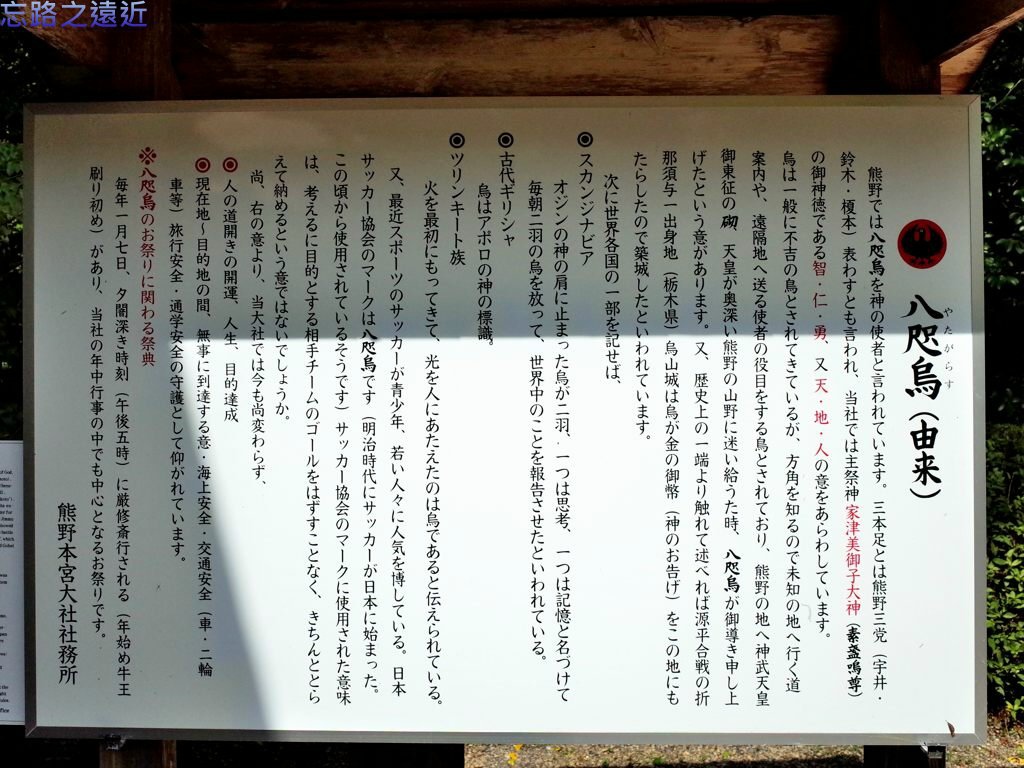 忘路之遠近
八咫烏（由来）
やたがらす
熊野では八咫烏を神の使者と言われています。三本足とは熊野三党（宇井・
鈴木・榎本）表わすとも言われ、当社では主祭神家津美御子大神（素盞嗚尊）
の御神徳である智・仁・勇、又天・地・人の意をあらわしています。
烏は一般に不吉の鳥とされてきているが、方角を知るので未知の地へ行く道
案内や、遠隔地へ送る使者の役目をする鳥とされており、熊野の地へ神武天皇
御東征の砌、天皇が奥深い熊野の山野に迷い給うた時、八咫烏が御導き申し上
げたという意があります。又、歴史上の一端より触れて述べれば源平合戦の折
那須与一出身地（栃木県）烏山城は烏が金の御幣（神のお告げ）をこの地にも
たらしたので築城したといわれています。
次に世界各国の一部を記せば、
◉スカンジナビア
オジンの神の肩に止まった烏が二羽、一つは思考、一つは記憶と名づけて
毎朝二羽の烏を放って、世界中のことを報告させたといわれている。
◉古代ギリシャ
烏はアポロの神の標識。
◉ツリンキート族
火を最初にもってきて、光を人にあたえたのは烏であると伝えられている。
又、最近スポーツのサッカーが青少年、若い人々に人気を博している。日本
サッカー協会のマークは八咫烏です（明治時代にサッカーが日本に始まった。
この頃から使用されているそうです）サッカー協会のマークに使用された意味
は、考えるに目的とする相手チームのゴールをはずすことなく、きちんととら
えて納めるという意ではないでしょうか。
尚、右の意より、当大社では今も尚変わらず、
◉人の道開きの開運、人生、目的達成
◉現在地〜目的地の間、無事に到達する意・海上安全・交通安全（車・二輪
車等）旅行安全・通学安全の守護として仰がれています。
※八咫烏のお祭りに関わる祭典
毎年一月七日、夕闇深き時刻（午後五時）に厳修斎行される（年始め牛王
刷り初め）があり、当社の年中行事の中でも中心となるお祭りです。
熊野本宮大社社務所